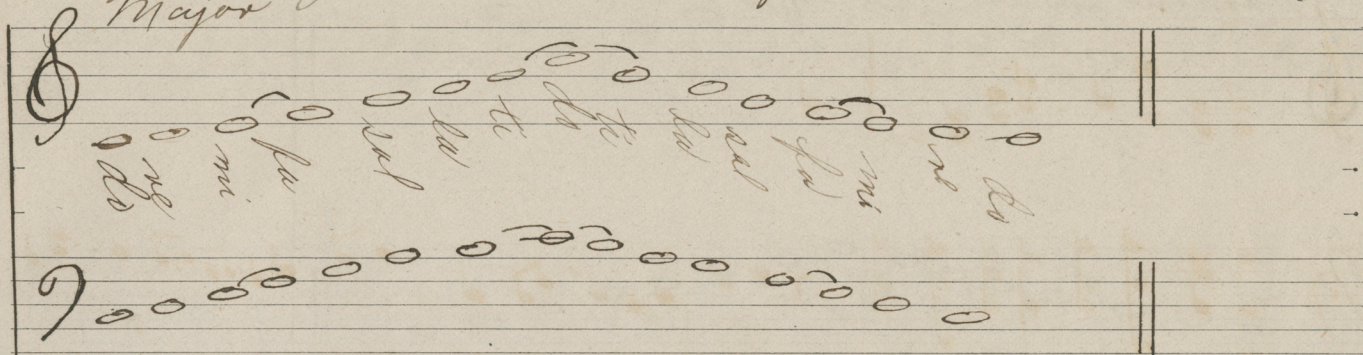 Major
do re mi fa sol la ti do ti la sol fa mi re do